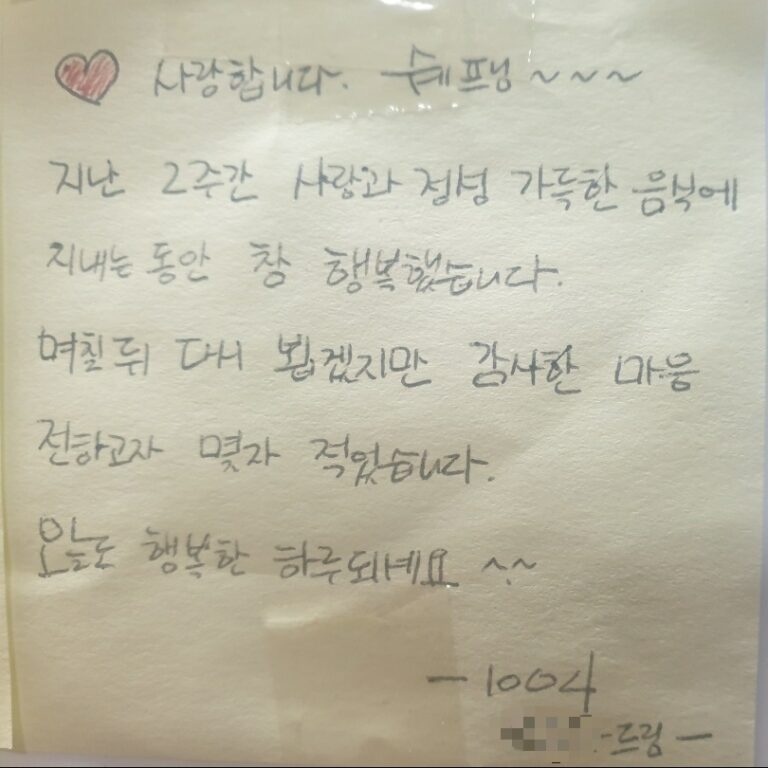 사랑합니다. 쉐프님~~~
지난 2주간 사랑과 정성 가득한 음식에
지내는 동안 참 행복했습니다.
며칠 뒤 다시 뵙겠지만 감사한 마음
전하고자 몇자 적었습니다.
오늘도 행복한 하루되세요 ^.~
- 1004
드림 -